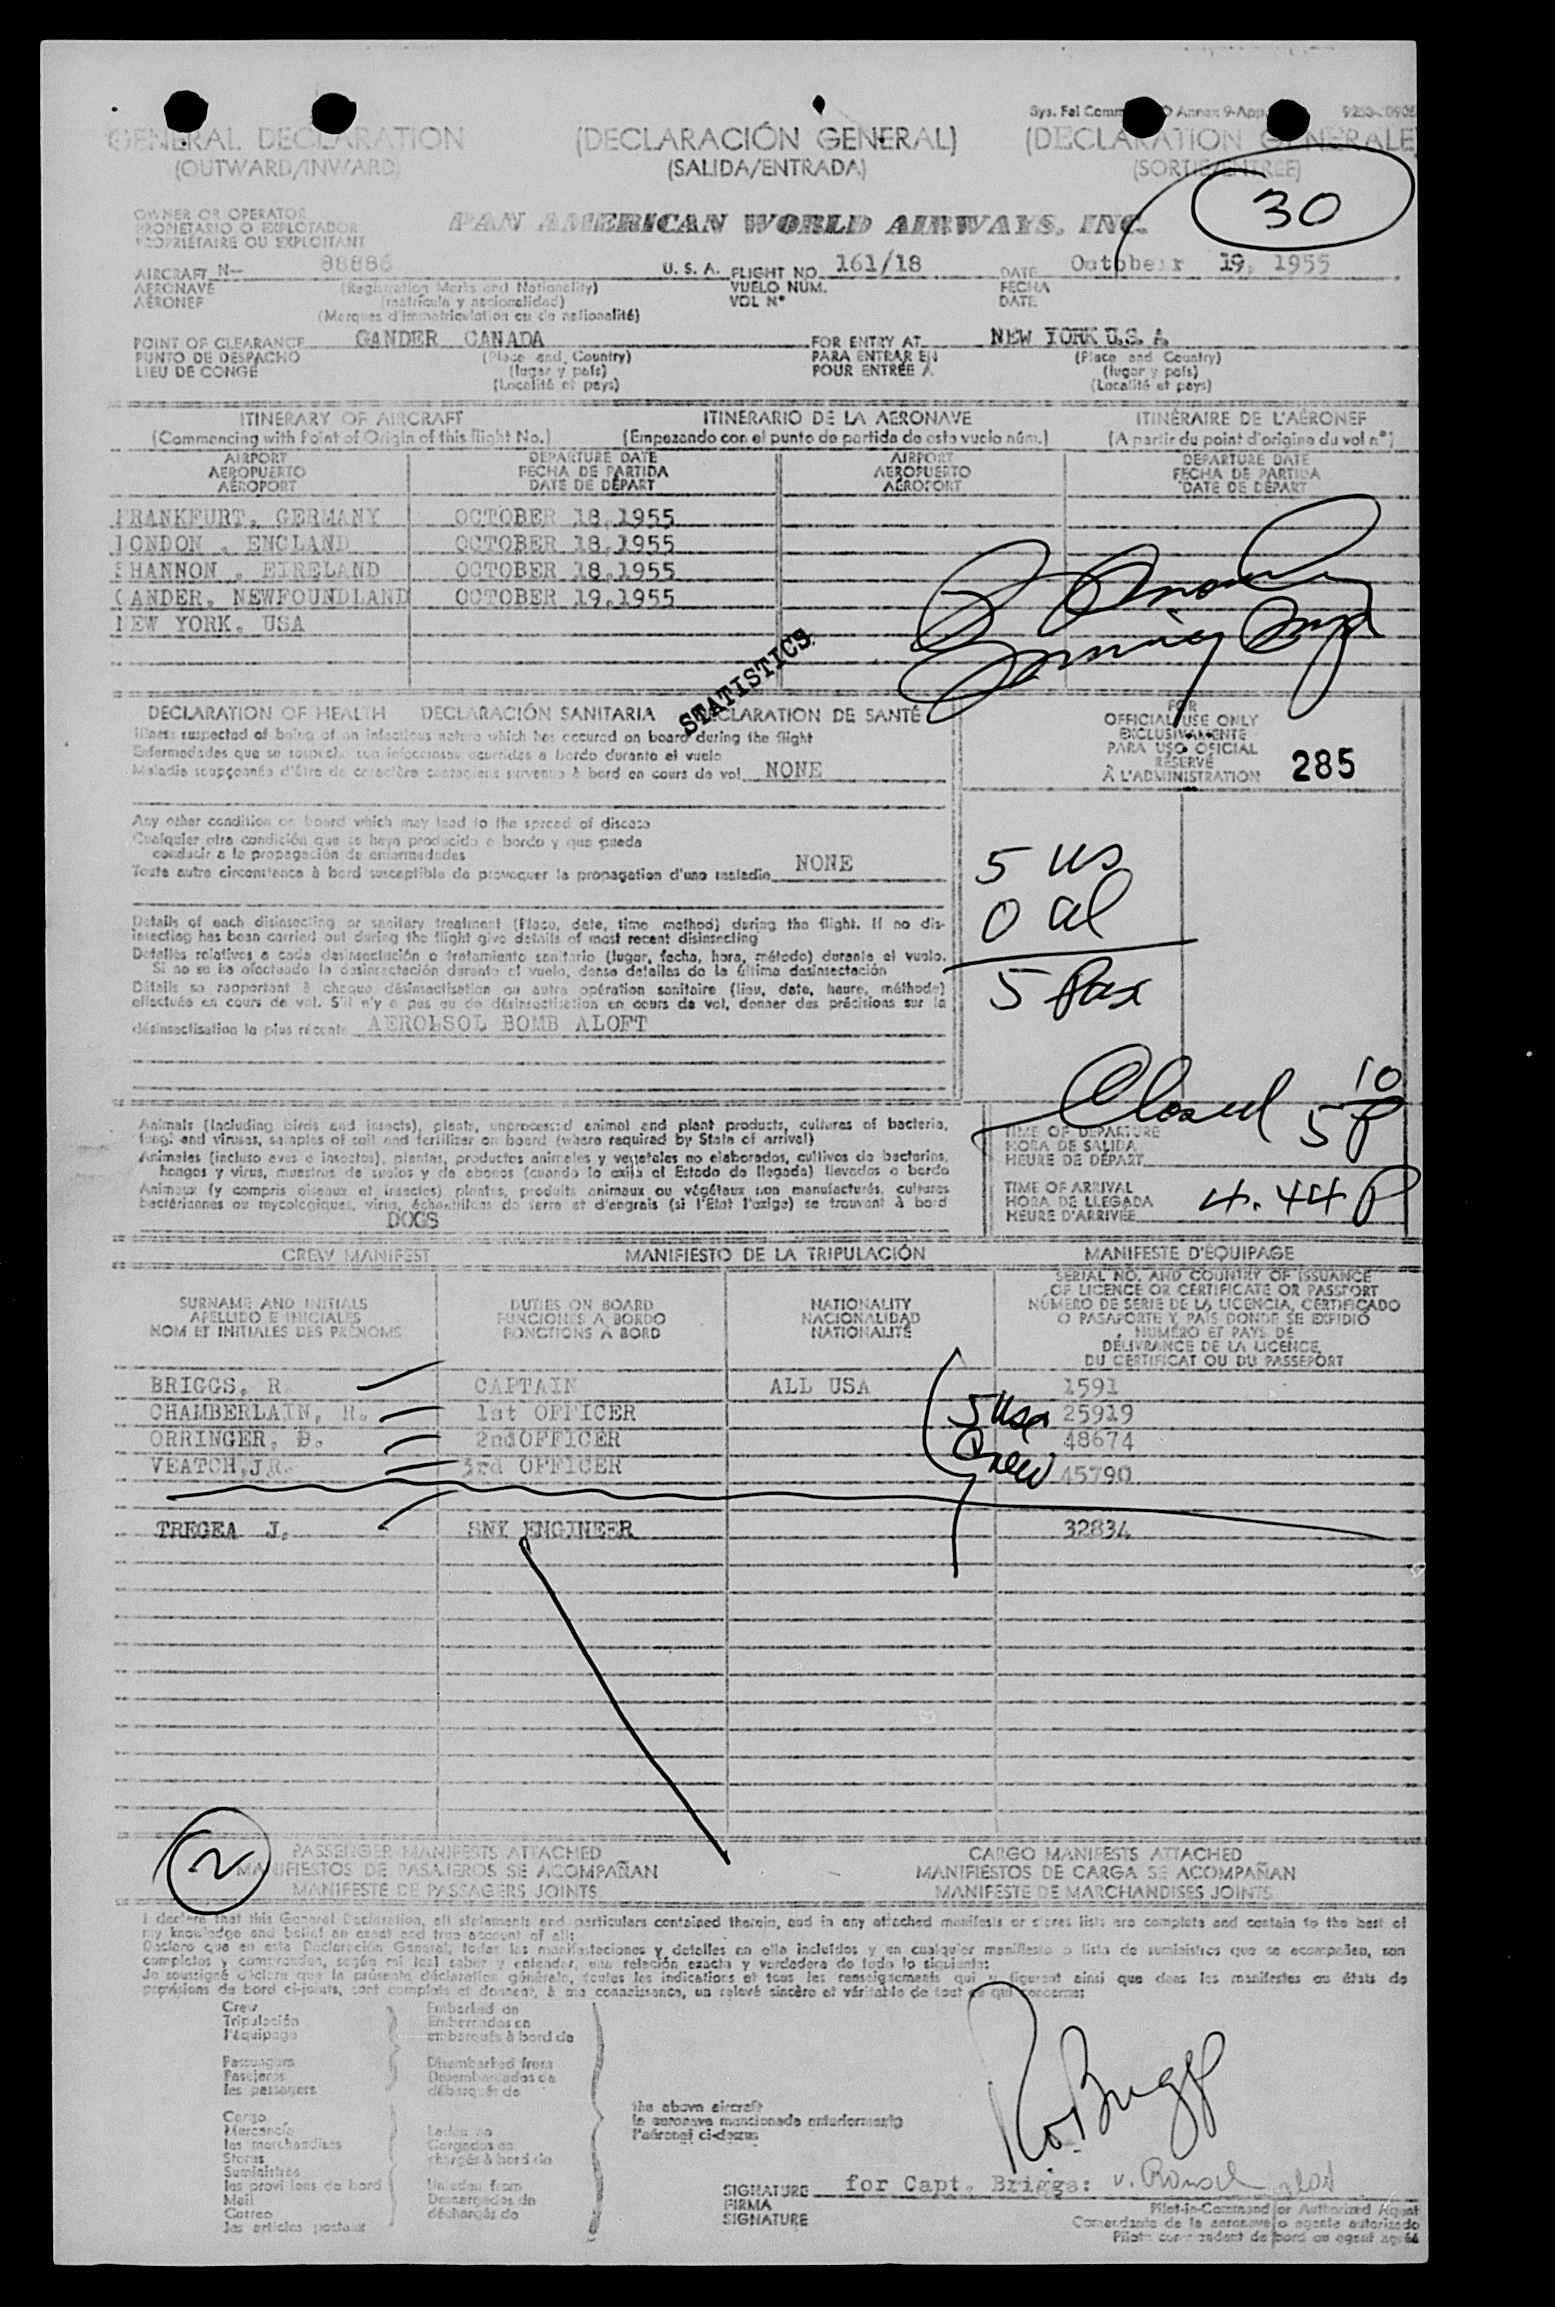 Sys. Fal Comm
Annex 9-App.
GENERAL DECLARATION (DECLARACIÓN GENERAL) (DECLARATION GENERALE)
(OUTWARD/INWARD) (SALIDA/ENTRADA) (SORTIE/ENTREE)
30
OWNER OR OPERATOR
PROPIETARIO O EXPLOTADOR
PROPRIÉTAIRE OU EXPLOITANT
PAN AMERICAN WORLD AIRWAYS, INC.
AIRCRAFT N-- 88886 U. S. A. FLIGHT NO. 161/18 DATE October 19, 1955
AERONAVE (Registration Marks and Nationality) VUELO NÚM. FECHA
AÉRONEF (matrícula y nacionalidad) VOL Nº DATE
(Marques d'immatriculation ou de nationalité)
POINT OF CLEARANCE GANDER CANADA FOR ENTRY AT NEW YORK U.S.A.
PUNTO DE DESPACHO (Place and Country) PARA ENTRAR EN (Place and Country)
LIEU DE CONGÉ (lugar y país) POUR ENTRÉE À (lugar y país)
(Localité et pays) (Localité et pays)
ITINERARY OF AIRCRAFT ITINERARIO DE LA AERONAVE ITINÉRAIRE DE L'AÉRONEF
(Commencing with Point of Origin of this flight No.) (Empezando con el punto de partida de este vuelo núm.) (A partir du point d'origine du vol nº)
AIRPORT DEPARTURE DATE AIRPORT DEPARTURE DATE
AEROPUERTO FECHA DE PARTIDA AEROPUERTO FECHA DE PARTIDA
AÉROPORT DATE DE DÉPART AÉROPORT DATE DE DÉPART
FRANKFURT, GERMANY OCTOBER 18,1955
LONDON , ENGLAND OCTOBER 18,1955
SHANNON , EIRELAND OCTOBER 18,1955
GANDER, NEWFOUNDLAND OCTOBER 19,1955
NEW YORK, USA
STATISTICS
DECLARATION OF HEALTH DECLARACIÓN SANITARIA DECLARATION DE SANTÉ
Illness suspected of being of an infectious nature which has occured on board during the flight
Enfermedades que se sospecha son infecciosas ocurridas a bordo durante el vuelo
Maladie soupçonnée d'être de caractère contagieux survenue à bord en cours de vol NONE
FOR
OFFICIAL USE ONLY
EXCLUSIVAMENTE
PARA USO OFICIAL
RÉSERVÉ
À L'ADMINISTRATION
285
Any other condition on board which may lead to the spread of disease
Cualquier otra condición que se haya producido a bordo y que pueda
conducir a la propagación de enfermedades
Toute autre circonstance à bord susceptible de provoquer la propagation d'une maladie NONE
5 US
0 al
5 Pax
Details of each disinsecting or sanitary treatment (Place, date, time method) during the flight. If no dis-
insecting has been carried out during the flight give details of most recent disinsecting
Detalles relativos a cada desinsectación o tratamiento sanitario (lugar, fecha, hora, método) durante el vuelo.
Si no se ha efectuado la desinsectación durante el vuelo, dense detalles de la última desinsectación
Détails se rapportant à chaque désinsectisation ou autre opération sanitaire (lieu, date, heure, méthode)
effectuée en cours de vol. S'il n'y a pas eu de désinsectisation en cours de vol, donner des précisions sur la
désinsectisation la plus récente AEROLSOL BOMB ALOFT
Closed 5 10 P
Animals (including birds and insects), plants, unprocessed animal and plant products, cultures of bacteria,
fungi and viruses, samples of soil and fertilizer on board (where required by State of arrival)
Animales (incluso aves e insectos), plantas, productos animales y vegetales no elaborados, cultivos de bacterias,
hongos y virus, muestras de suelos y de abonos (cuando lo exija el Estado de llegada) llevados a bordo
Animaux (y compris oiseaux et insectes) plantes, produits animaux ou végétaux non manufacturés, cultures
bactériennes ou mycologiques, virus, échantillons de terre et d'engrais (si l'État l'exige) se trouvant à bord
DOGS
TIME OF DEPARTURE
HORA DE SALIDA
HEURE DE DÉPART
TIME OF ARRIVAL
HORA DE LLEGADA
HEURE D'ARRIVÉE
4.44 P
CREW MANIFEST MANIFIESTO DE LA TRIPULACIÓN MANIFESTE D'ÉQUIPAGE
SURNAME AND INITIALS
APELLIDO E INICIALES
NOM ET INITIALES DES PRÉNOMS
DUTIES ON BOARD
FUNCIONES A BORDO
FONCTIONS À BORD
NATIONALITY
NACIONALIDAD
NATIONALITÉ
SERIAL NO. AND COUNTRY OF ISSUANCE
OF LICENCE OR CERTIFICATE OR PASSPORT
NÚMERO DE SERIE DE LA LICENCIA, CERTIFICADO
O PASAPORTE Y PAÍS DONDE SE EXPIDIÓ
NUMÉRO ET PAYS DE
DÉLIVRANCE DE LA LICENCE,
DU CERTIFICAT OU DU PASSEPORT
BRIGGS, R. CAPTAIN ALL USA 1591
CHAMBERLAIN, H. 1st OFFICER 25919
ORRINGER, B. 2ndOFFICER 48674
VEATCH,JR. 3rd OFFICER 45790
5 USA
Crew
TREGEA J. SNY ENGINEER 32834
2
PASSENGER MANIFESTS ATTACHED CARGO MANIFESTS ATTACHED
MANIFIESTOS DE PASAJEROS SE ACOMPAÑAN MANIFIESTOS DE CARGA SE ACOMPAÑAN
MANIFESTE DE PASSAGERS JOINTS MANIFESTE DE MARCHANDISES JOINTS
I declare that this General Declaration, all statements and particulars contained therein, and in any attached manifests or stores lists are complete and contain to the best of
my knowledge and belief an exact and true account of all:
Declaro que en esta Declaración General, todas las manifestaciones y detalles en ella incluídos y en cualquier manifiesto o lista de suministros que se acompañen, son
completos y comprenden, según mi leal saber y entender, una relación exacta y verdadera de todo lo siguiente:
Je soussigné déclare que la présente déclaration générale, toutes les indications et tous les renseignements qui y figurent ainsi que dans les manifestes ou états de
provisions de bord ci-joints, sont complets et donnent, à ma connaissance, un relevé sincère et véritable de tout ce qui concerne:
Crew Embarked on
Tripulación Embarcados en
l'équipage embarqués à bord de
Passengers Disembarked from
Pasajeros Desembarcados de
les passagers débarqués de
Cargo
Mercancía Laden on
les marchandises Cargados en
Stores chargés à bord de
Suministros
les provisions de bord Unladen from
Mail Descargados de
Correo déchargés de
les articles postaux
the above aircraft
la aeronave mencionada anteriormente
l'aéronef ci-dessus
SIGNATURE for Capt. Briggs:
FIRMA Pilot-in-Command or Authorized Agent
SIGNATURE Comandante de la aeronave o agente autorizado
Pilote commandant de bord ou agent agréé